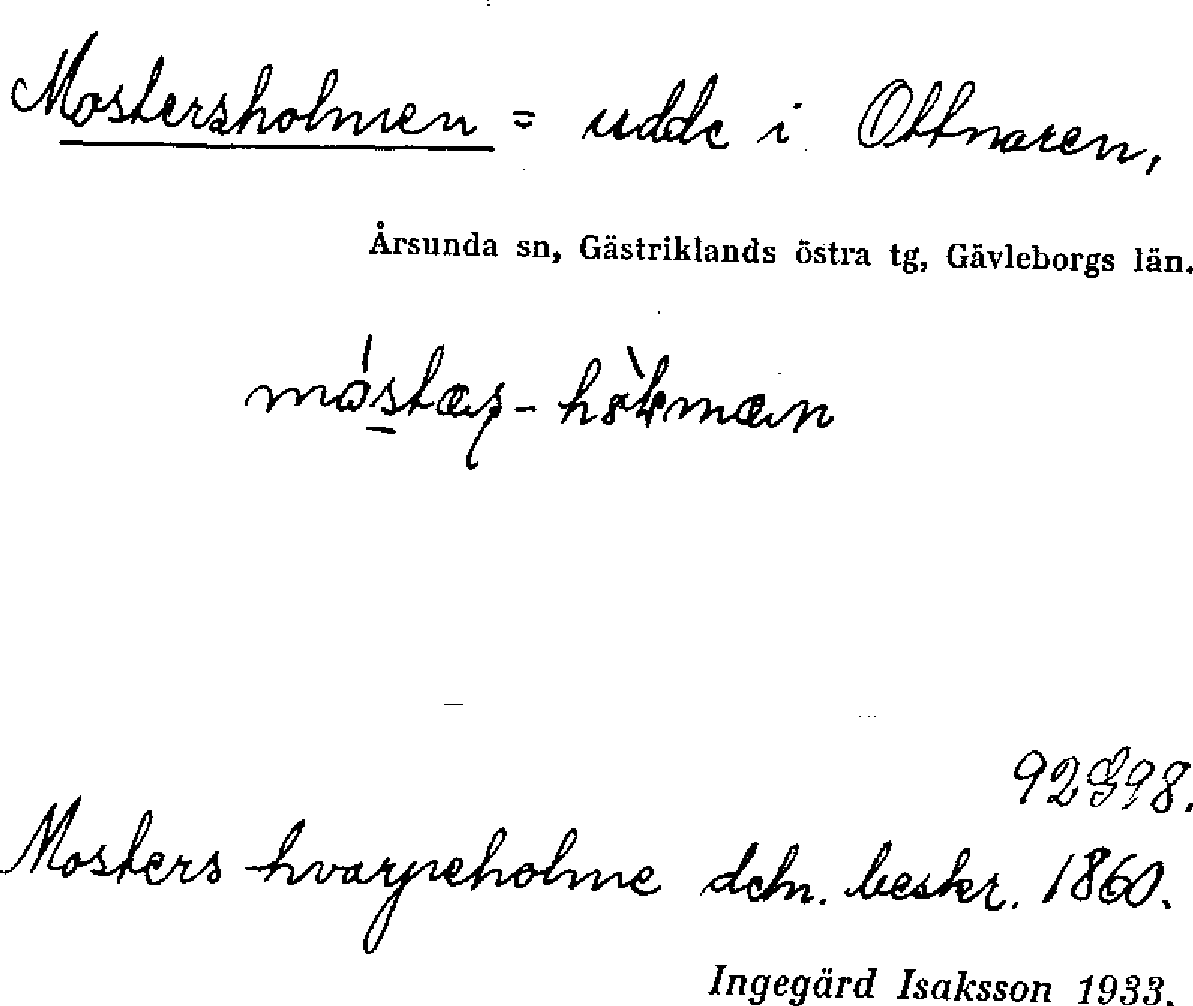 Mostersholmen = udde i Ottnaren,
Årsunda sn, Gästriklands östra tg, Gävleborgs län.
92G98.
Mosters hvarpeholme dehn. beskr. 1860.
Ingegärd Isaksson 1933.